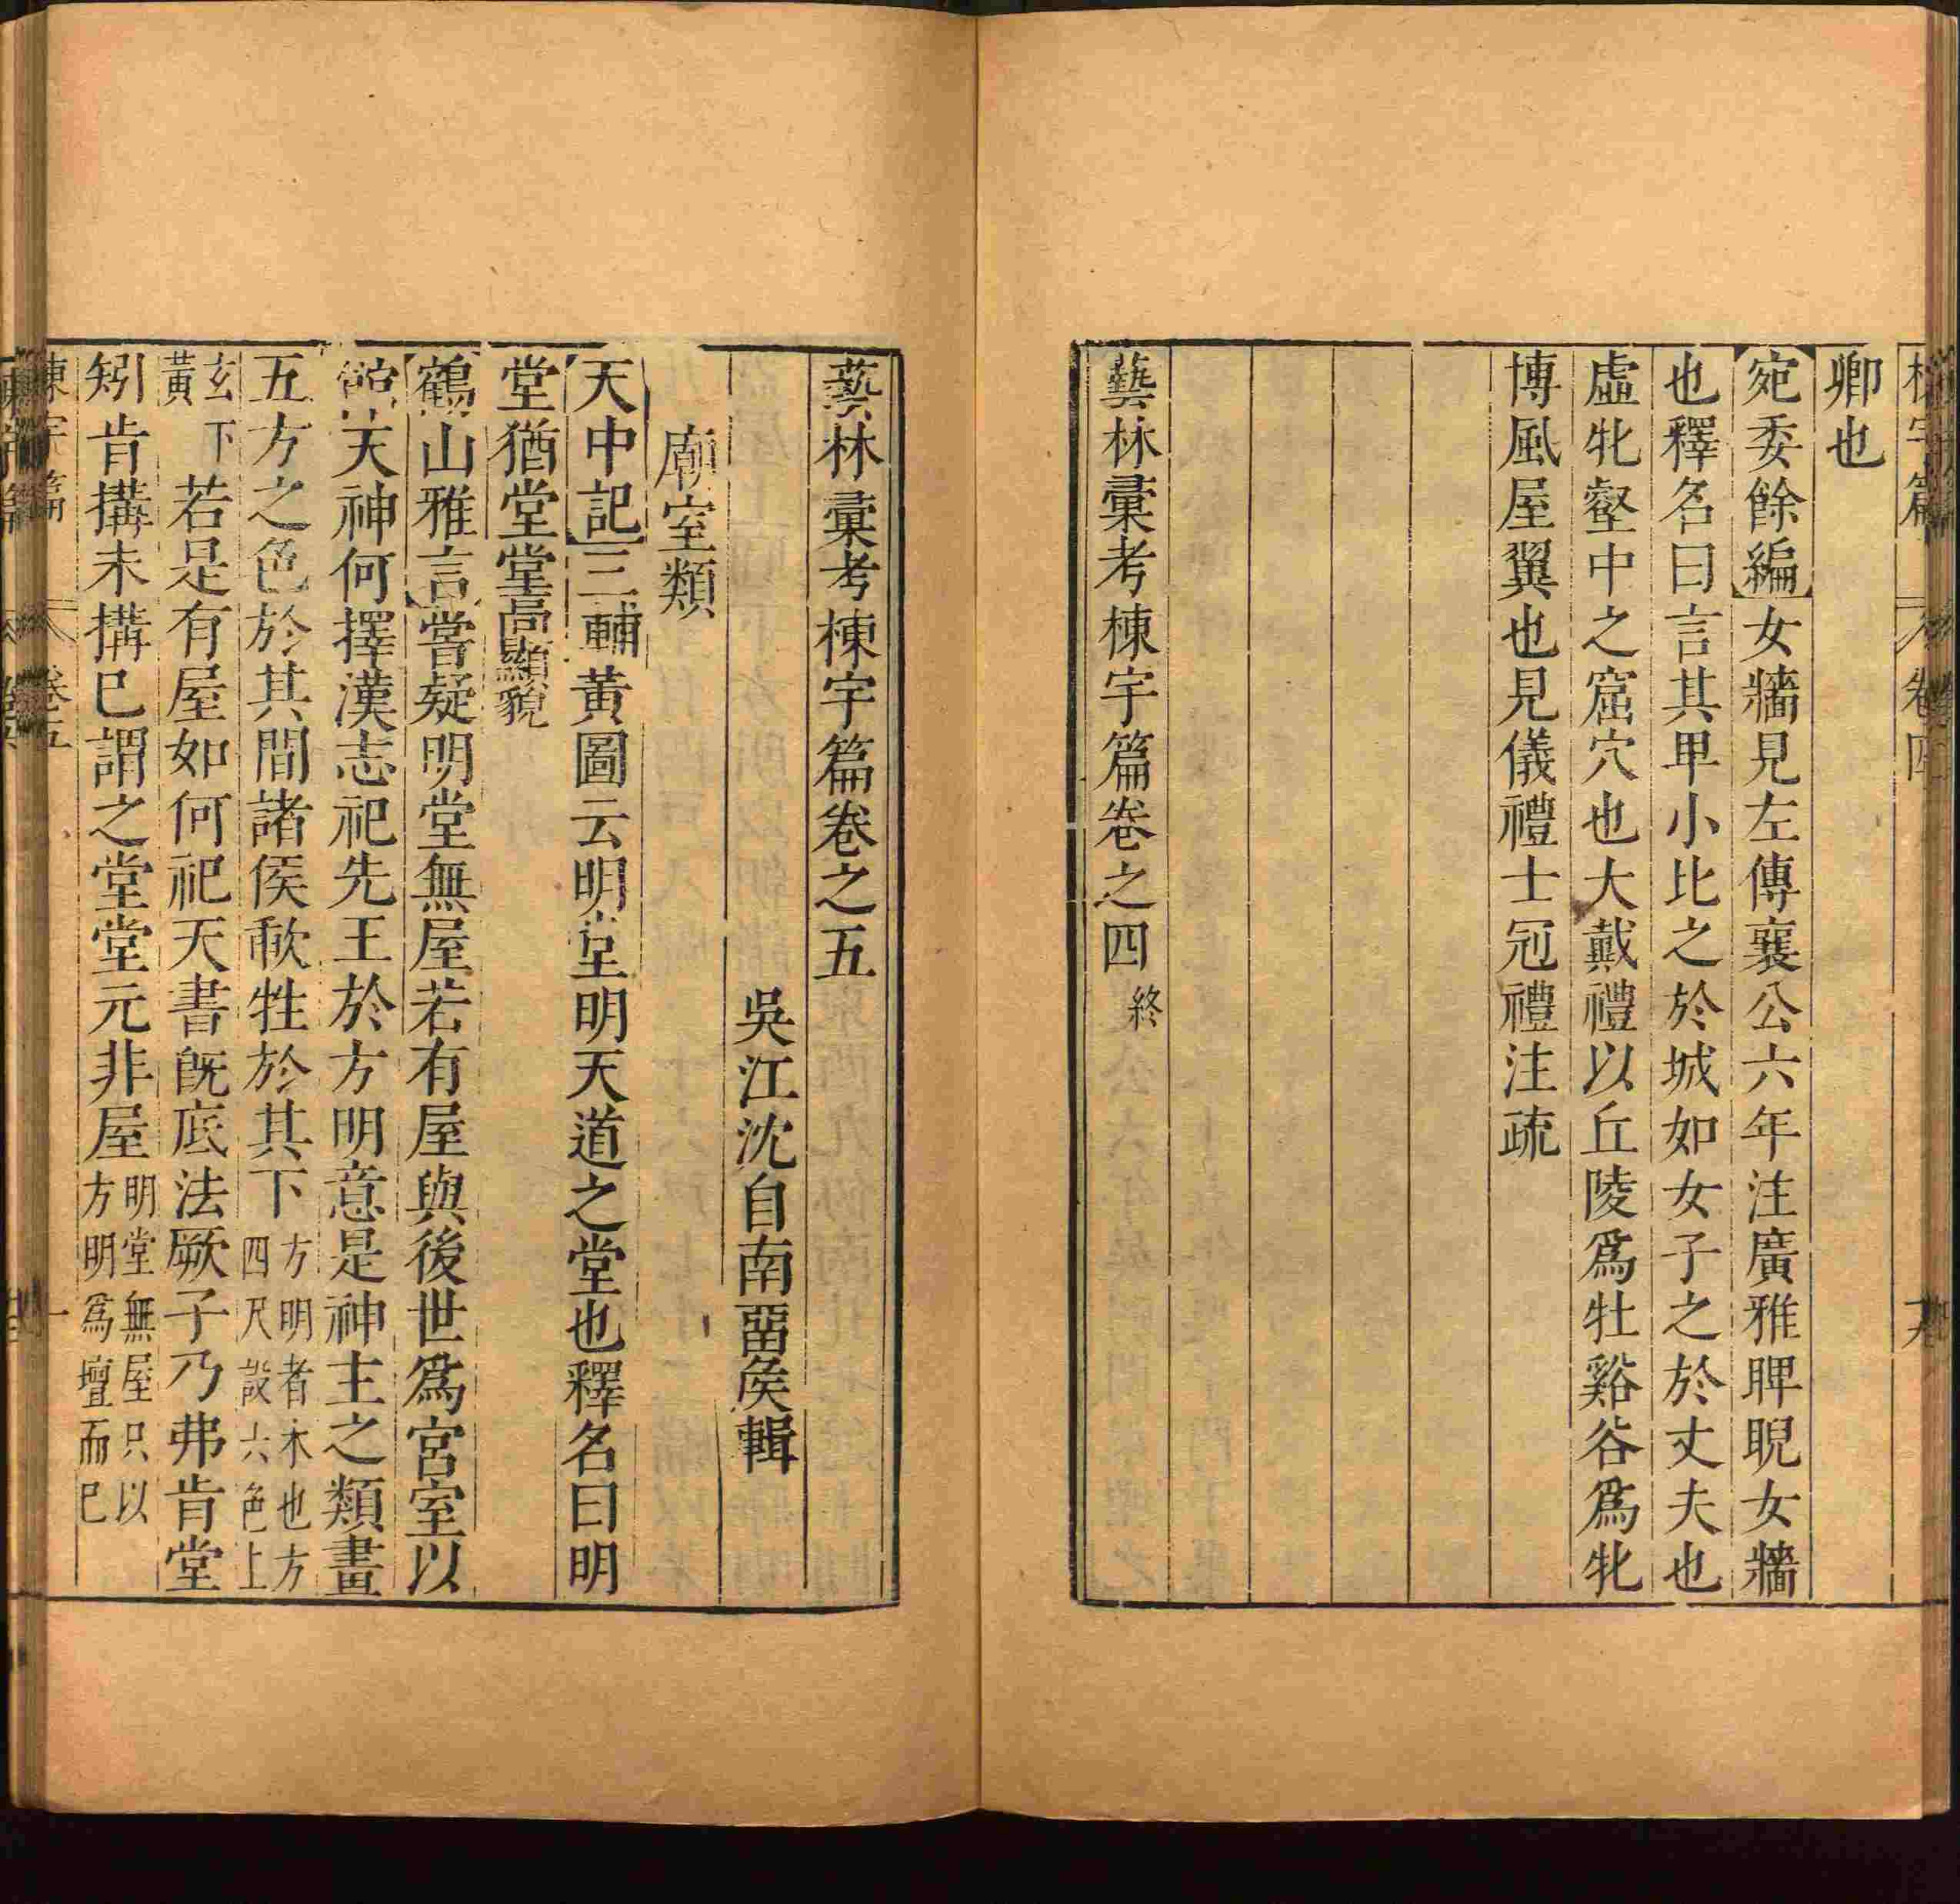 卿也
宛委餘編女牆見左傳襄公六年注廣雅睥睨女牆
也釋名曰言其甲小比之於城如女子之於丈夫也
虛牝壑中之窟穴也大戴禮以丘陵爲牡谿谷爲牝
博風屋翼也見儀禮士冠禮注疏
藝林彙考棟宇篇卷之四終
藝林彙考棟宇篇卷之五
吳江沈自南畱矦輯
廟室類
天中記三輔黃圖云明堂明天道之堂也釋名曰明
堂猶堂堂高顯貌
鶴山雅言嘗疑明堂無屋若有屋與後世爲宮室以
天神何擇漢志祀先王於方明意是神主之類畫
五方之色於其間諸侯歃牲於其下方明者木也方四尺設六色上
玄下黃若是有屋如何祀天書旣底法厥子乃弗肯堂
矧肯搆未搆已謂之堂堂元非屋明堂無屋只以方明爲壇而已
棟宇篇 卷五 一